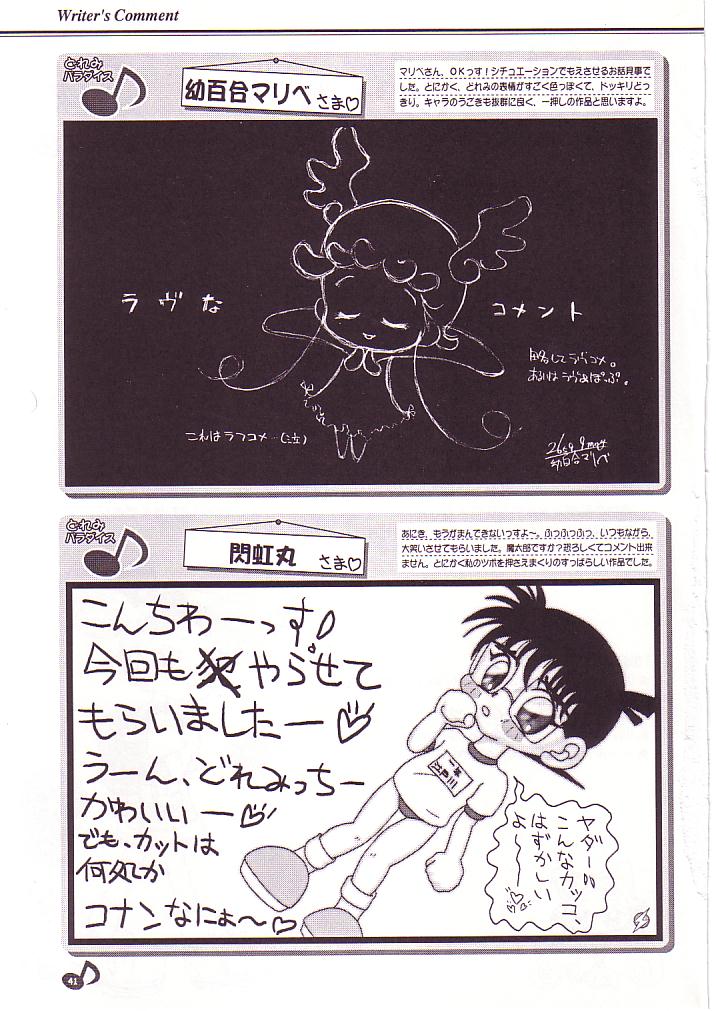 Writer's Comment
どれみ
パラダイス
幼百合マリベ さま♡
マリベさん、OKっす!シチュエーションでもえさせるお話見事で
した。とにかく、どれみの表情がすごく色っぽくて、ドッキリどっ
きり。キャラのうごきも抜群に良く、一押しの作品と思いますよ。
ラヴな
コメント
略してラヴコメ。
あるいはラヴあぽっぷ。
これはラフコメ…(泣)
幼百合マリベ
どれみ
パラダイス
閃虹丸 さま♡
あにき、もうがまんできないっすよ〜。ふっふっふっ、いつもながら、
大笑いさせてもらいました。魔太郎ですか?恐ろしくてコメント出来
ません。とにかく私のツボを押さえまくりのすっばらしい作品でした。
こんちわーっす!
今回もやらせて
もらいましたー♡
うーん、どれみっちー
かわいいー♡
でも、カットは
何処か
コナンなにぉ〜♡
一年
江戸川
ヤダー!!
こんなカッコ、
はずかしい
よ〜〜♡
41